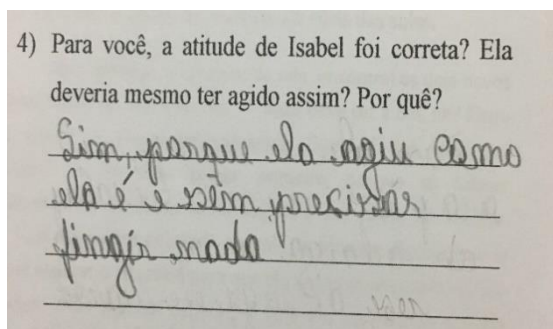 4) Para você, a atitude de Isabel foi correta? Ela
deveria mesmo ter agido assim? Por quê?
Sim, porque ela agiu como
ela é e sem precisar
fingir nada